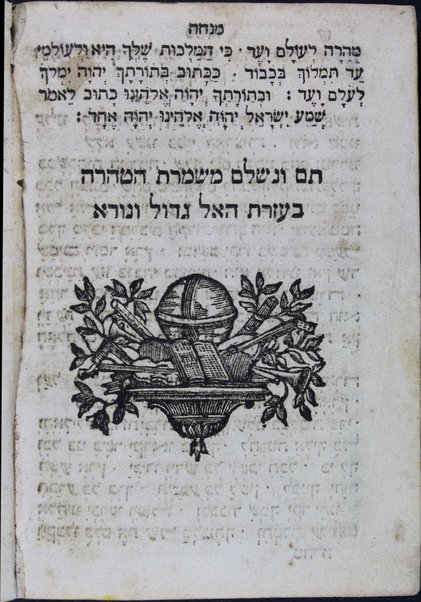 מנחה
מְהֵרָה לְעוֹלָם וָעֶד . כִּי הַמַּלְכוּת שֶׁלְּךָ הִיא וּלְעוֹלְמֵי
עַד תִּמְלוֹךְ בְּכָבוֹד . כַּכָּתוּב בְּתוֹרָתָךְ יְהֹוָה יִמְלֹךְ
לְעֹלָם וָעֶד : וּבְתוֹרָתְךָ יְהֹוָה אֱלֹהֵינוּ כָּתוּב לֵאמֹר
שְׁמַע יִשְׂרָאֵל יְהֹוָה אֱלֹהֵינוּ יְהֹוָה אֶחָד :
תם ונשלם משמרת הטהרה
בעזרת האל גדול ונורא